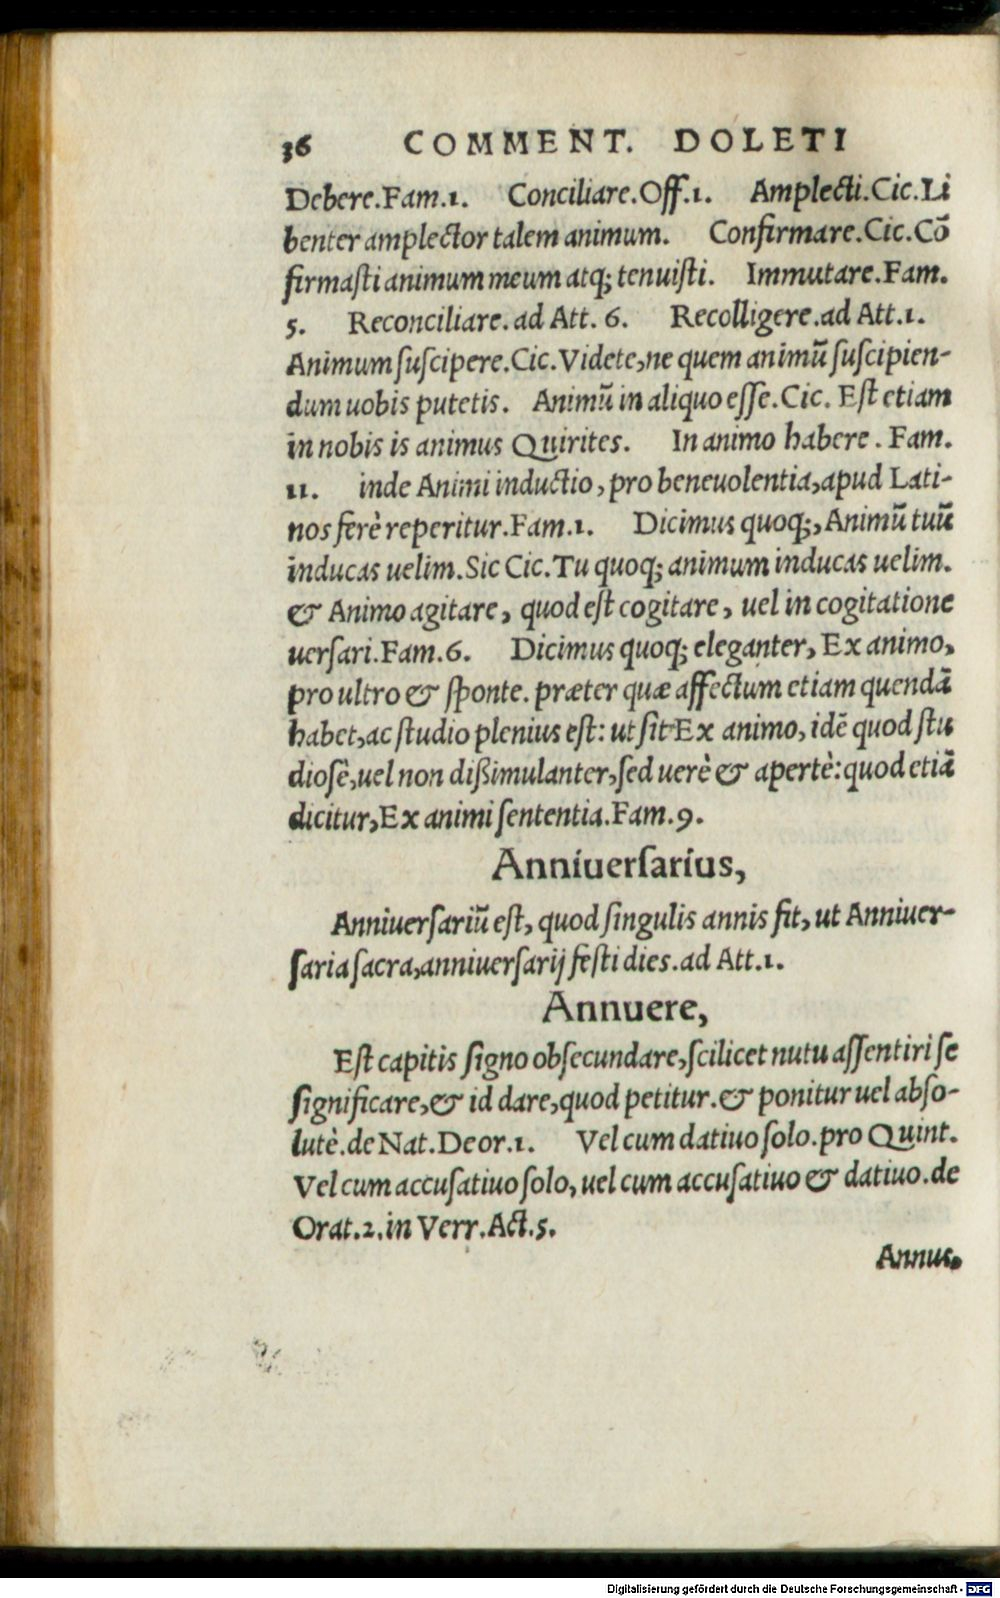 36 COMMENT. DOLETI
Debere.Fam.1. Conciliare.Off.1. Amplecti.Cic.Li
benter amplector talem animum. Confirmare.Cic.Cõ
firmaſti animum meum atq; tenuiſti. Immutare.Fam.
5. Reconciliare.ad Att.6. Recolligere.ad Att.1.
Animum ſuſcipere.Cic.Videte,ne quem animũ ſuſcipien-
dum uobis putetis. Animũ in aliquo eſſe.Cic. Eſt etiam
in nobis is animus Quirites. In animo habere. Fam.
11. inde Animi inductio, pro beneuolentia,apud Lati-
nos ferè reperitur.Fam.1. Dicimus quoq;,Animũ tuũ
inducas uelim.Sic Cic.Tu quoq; animum inducas uelim.
& Animo agitare, quod eſt cogitare, uel in cogitatione
uerſari.Fam.6. Dicimus quoq; eleganter, Ex animo,
pro ultro & ſponte. præter quæ affectum etiam quendã
habet,ac ſtudio plenius eſt: ut ſit Ex animo, idẽ quod ſtu
dioſè,uel non dißimulanter,ſed uerè & apertè:quod etiã
dicitur,Ex animi ſententia.Fam.9.
Anniuerſarius,
Anniuerſariũ eſt, quod ſingulis annis fit, ut Anniuer-
ſaria ſacra,anniuerſarij feſti dies.ad Att.1.
Annuere,
Eſt capitis ſigno obſecundare,ſcilicet nutu aſſentiri ſe
ſignificare,& id dare,quod petitur.& ponitur uel abſo-
lutè.de Nat.Deor.1. Vel cum datiuo ſolo.pro Quint.
Vel cum accuſatiuo ſolo, uel cum accuſatiuo & datiuo.de
Orat.2.in Verr.Act.5.
Annus.
Digitalisierung gefördert durch die Deutsche Forschungsgemeinschaft - DFG